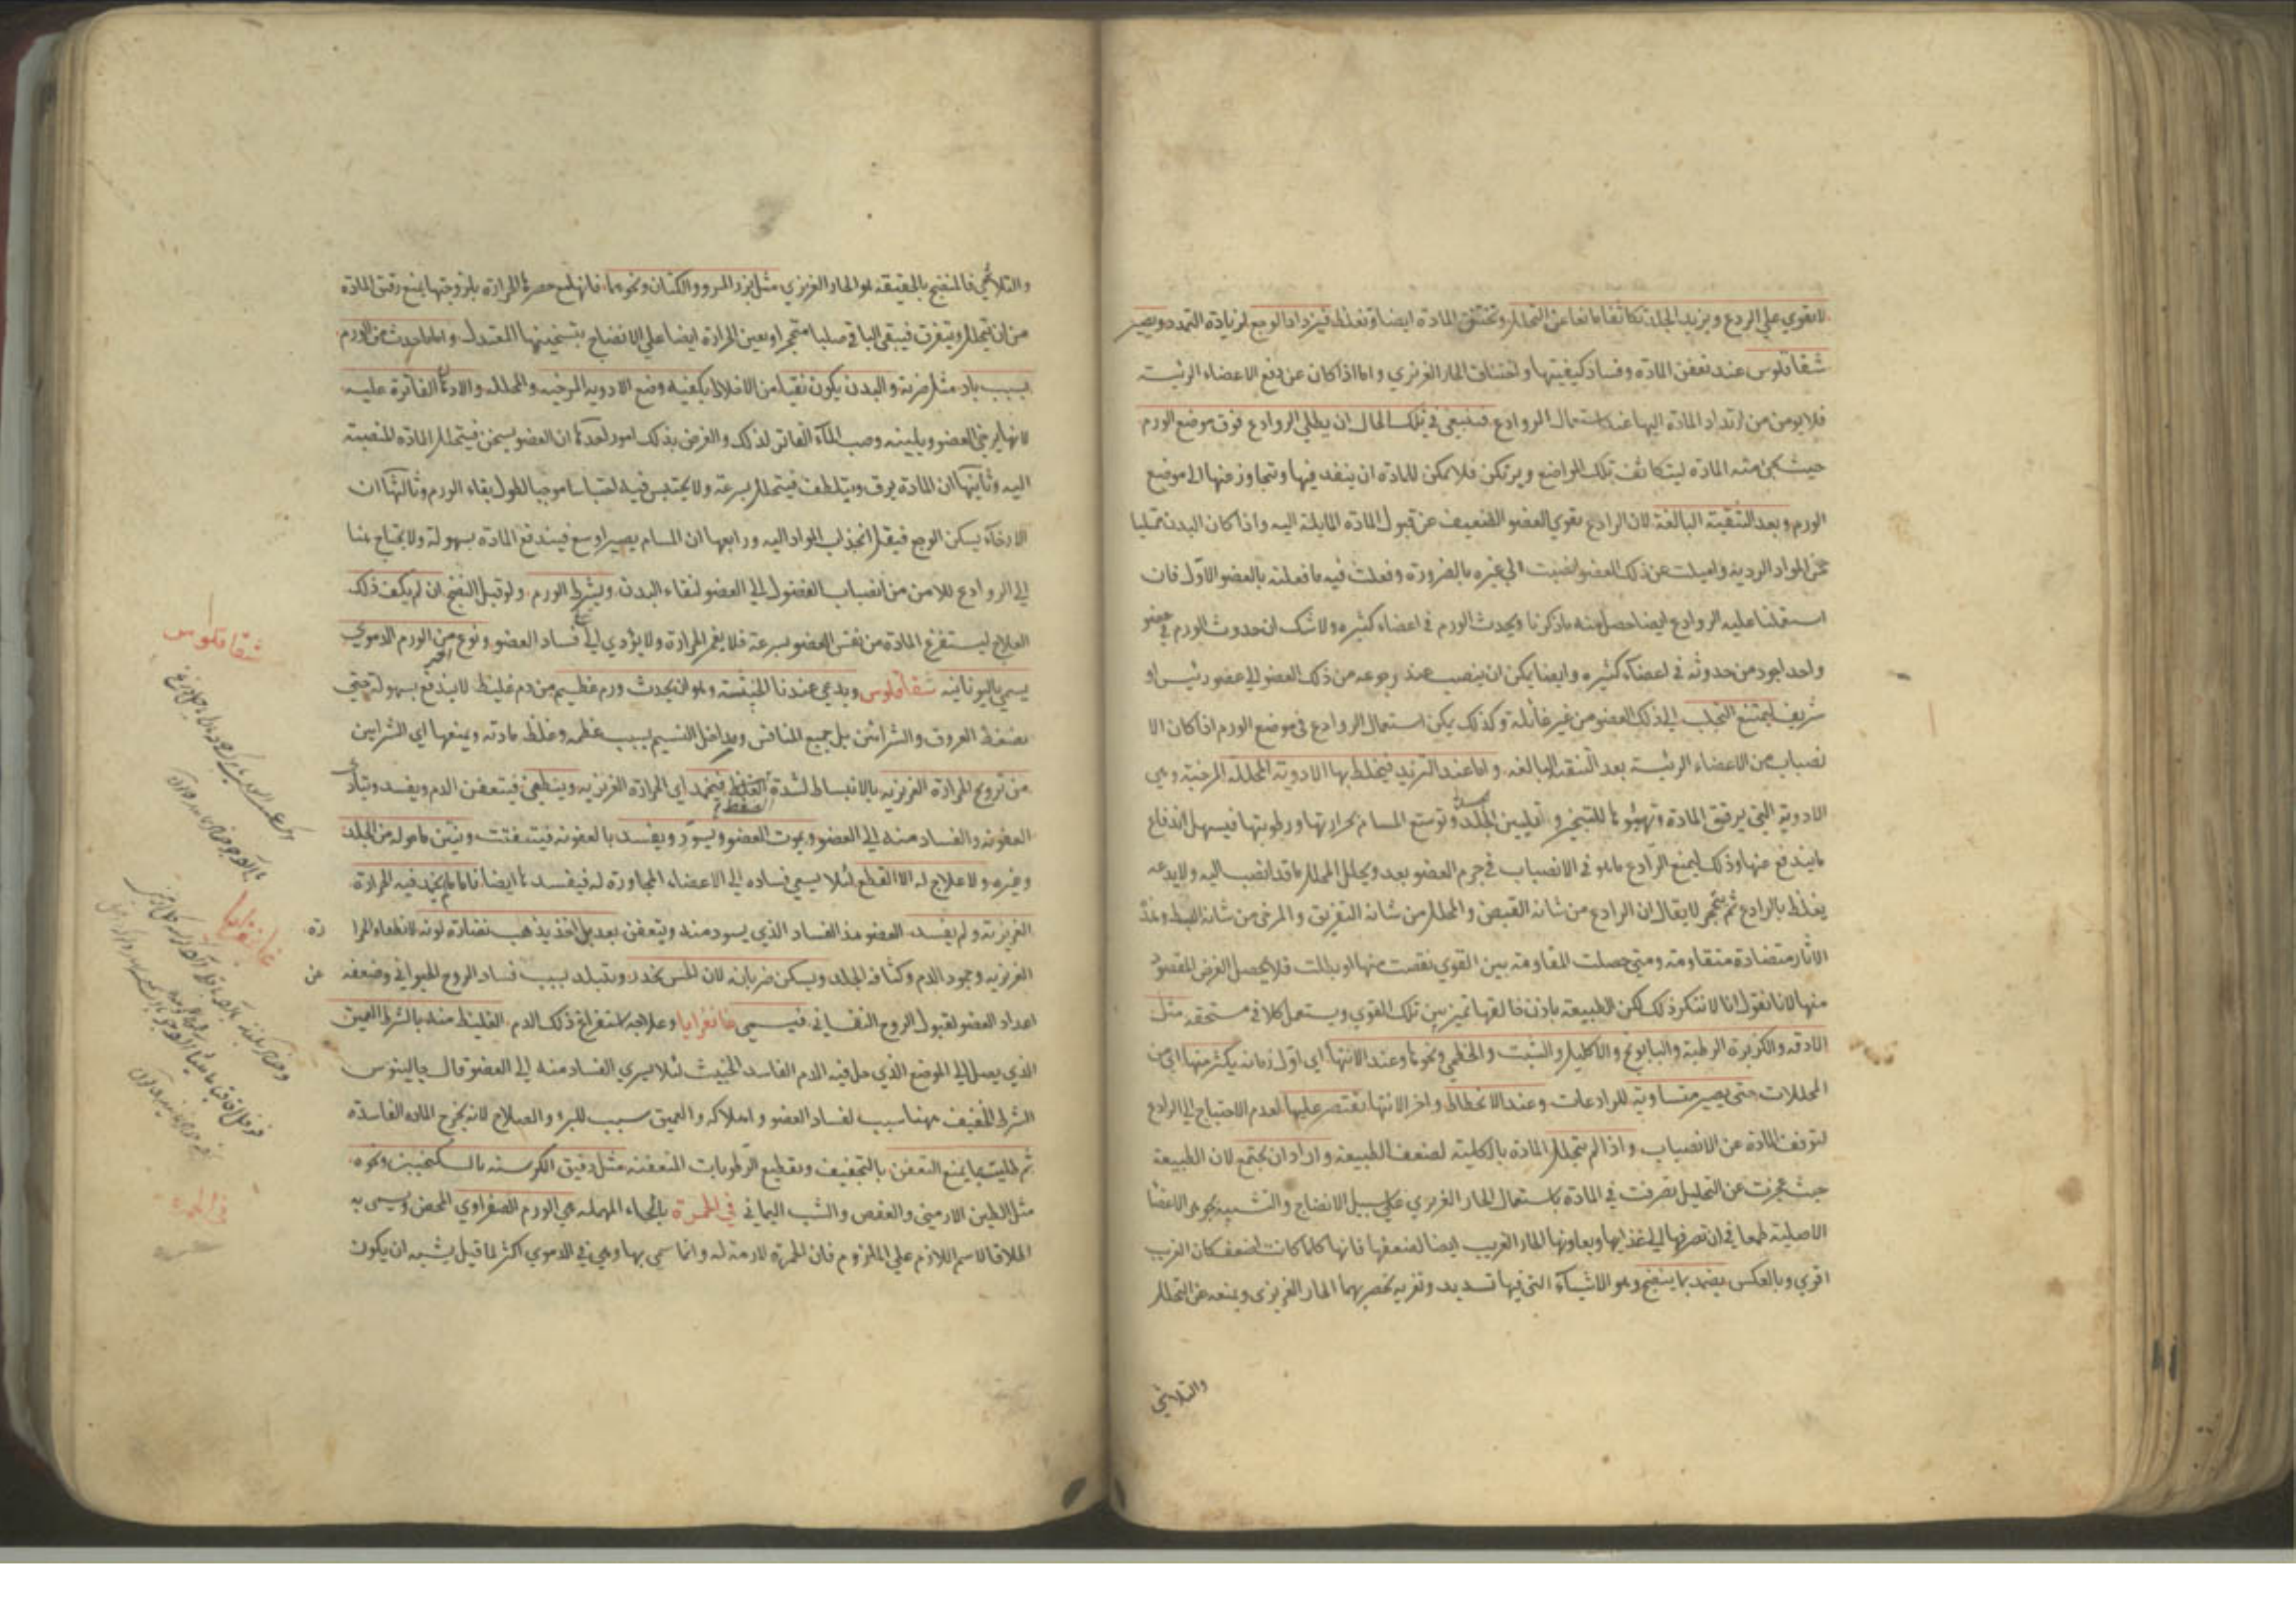 لا يقوي علي الردع ويزيد الجلد تكاثفا مانعا عن التحلل وتختنق المادة ايضا وتغلظ فيزداد الوجع لزيادة التمدد ويصير
شقاقلوس عند تعفن المادة وفساد كيفيتها واختناق الحار الغريزي واما اذا كان عن دفع الاعضاء الرئيسة
فلا يومن من ارتداد المادة اليها عند استعمال الروادع فينبغي في تلك الحال ان يطلي الروادع فوق موضع الورم
حيث يجئ منه المادة ليتكاثف تلك المواضع ويرتكن فلا يمكن للمادة ان ينفد فيها وتتجاوز منها الي موضع
الورم وبعد التنقية البالغة لان الرادع يقوي العضو الضعيف عن قبول المادة المايلة اليه واذا كان البدن ممتليا
من المواد الردية واميلت عن ذلك العضو انصبت الي غيره بالضرورة وفعلت فيه ما فعلته بالعضو الاول فان
استعملنا عليه الروادع ايضا حصل منه ما ذكرنا ويحدث الورم في اعضاء كثيره ولا شك ان حدوث الورم في عضو
واحد اجود من حدوثه في اعضاء كثيره وايضا يمكن ان ينصب عند رجوعه من ذلك العضو الي عضو رئيس او
شريف ليمتنع التحلب الي ذلك العضو من غير غائلة وكذلك يمكن استعمال الروادع في موضع الورم اذا كان الا
نصباب من الاعضاء الرئيسة بعد التنقية البالغه واما عند التزيد فيخلط بها الادوية المحللة المرخية وهي
الادوية التي يرقق المادة وتهيئوها للتبخر و تليين الجلد وتوسع المسام بحرارتها ورطوبتها فيسهل اندفاع
ما يندفع عنها وذلك ليمنع الرادع ما هو في الانصباب في جرم العضو بعد ويحلل المحلل ما قد انصب اليه ولا يدعه
يغلظ بالرادع ثم يتحجر لا يقال ان الرادع من شانه القبض والمحلل من شانه التفريق والمرخى من شانه البسط وهذه
الاثار متضادة متقاومة ومتى حصلت المقاومة بين القوي نقصت منها او بطلت فلا يحصل الغرض المقصود
منها لانا نقول انا لا نتكر ذلك لكن الطبيعة باذن خالقها تميز بين تلك القوي ويستعمل كلا في مستحقه مثل
الادقه والكزبرة الرطبة والبابونج والاكليل والشبت والخطمي ونحوها وعند الانتهاء اي اول زمانه يكثر منها اي من
المحللات حتى يصير متساوية للرادعات وعند الانحطاط واخر الانتها يقتصر عليها لعدم الاحتياج الي الرادع
لتوقف المادة عن الانصباب واذا لم يتحلل المادة بالكلية لضعف الطبيعة واراد ان يجتمع لان الطبيعة
حيث عجزت عن التحليل تصرفت في المادة باستعمال الحار الغريزي علي سبيل الانضاج والتشبيه بجوهر الاعضا
الاصلية طمعا في ان تصرفها الي غذايها ويعاونها الحار الغريب ايضا لضعفها فانها كلما كانت اضعف كان الغريب
اقوي وبالعكس يضمد بما ينضج وهو الاشياء التي فيها تسديد وتغرية يحصر بهما الحار الغريزى ويمنعه عن التحلل
والتلاشي
والتلاشي فالمنضج بالحقيقة هو الحار الغريزي مثل بزر المرو والكتان ونحوهما فانها مع حصرها الحرارة بلزوجتها يمنع رقيق المادة
من ان يتحلل ويتفرق فيبقى الباقي صلبا متحجرا ويعين الحرارة ايضا علي الانضاج بتسخينها المعتدل واما ما حدث من الورم
بسبب باد مثل ضربة والبدن يكون نقيا من الاخلاط يكفيه وضع الادوية المرخيه والمحلله والادهان الفاترة عليه
لانها يرخي العضو ويلينه وصب الماء الفاتر لذلك والغرض بذلك امور احدها ان العضو يسخن فيتحلل المادة المنصبة
اليه وثانيها ان المادة يرق ويتلطف فيتحلل بسرعة ولا يحتبس فيه احتباسا موجبا لطول بقاء الورم وثالثها ان
الارخاء يسكن الوجع فيقل انجذاب المواد اليه ورابعها ان المسام يصير اوسع فيندفع المادة بسهولة ولا يحتاج هنا
الي الروادع للامن من انصباب الفضول الي العضو لنقاء البدن ويشرط الورم ولو قبل النضج ان لم يكف ذلك
العلاج ليستفرغ المادة من نفس العضو بسرعة فلا يغمر الحرارة ولا يؤدي الي فساد العضو ونوع من الورم الدموي
يسمي باليونانية شقاقلوس ويدعي عندنا الخبيثة وهو ان يحدث ورم عظيم من دم غليظ لا يندفع بسهولة حتى
يضغط العروق والشرائين بل جميع المنافس ومداخل النسيم بسبب عظمه وغلظ مادته ويمنعها اي الشرايين
من ترويح الحرارة الغريزيه بالانبساط لشدة الضغط فيخمد اي الحرارة الغريزيه وينطفي فيتعفن الدم ويفسد ويتادى
العفونه والفساد منه الي العضو ويموت العضو ويسود ويفسد بالعفونه فيتفتت وينتن ما حوله من الجلد
وغيره ولا علاج له الا القطع لئلا يسعي فساده الي الاعضاء المجاورة له فيفسدها ايضا فاما ما لم يخمد فيه الحرارة
الغريزية ولم يفسد العضو هذا الفساد الذي يسود منه ويتعفن بعد بل اخذ يذهب نضارة لونه لانطفاء الحرا رة
الغريزيه وجمود الدم وكثافة الجلد ويسكن ضربانه لان الحس يخدر ويتبلد بسبب فساد الروح الحيواني وضعفه عن
اعداد العضو لقبول الروح النفساني فيسمى غانغرايا وعلاجه استفراغ ذلك الدم الغليظ منه بالشرط العميق
الذي يصل الي الموضع الذي حل فيه الدم الفاسد الخبيث لئلا يسري الفساد منه الي العضو قال جالينوس
الشرط الخفيف ههنا سبب لفساد العضو واهلاكه والعميق سبب للبرؤ والصلاح لانه يخرج الماده الفاسدة
ثم طليت بما يمنع التعفن بالتجفيف وتقطيع الرطوبات المتعفنة مثل دقيق الكرسنه بالسكنجبين ونحوه
مثل الطين الارمني والعفص والشب اليماني في الحمرة بالحاء المهملة هي الورم الصفراوي المحض ويسمى به
اطلاقا لاسم اللازم علي الملزوم فان الحمرة لازمة له وانما سمى بها وهي في الدموي اكثر لما قيل يشبه ان يكون
شقاقلوس
غانغرايا
في الحمره